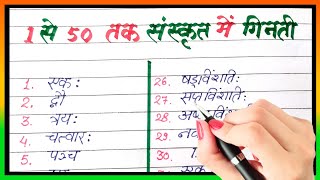 1 से 50 तक संस्कृत में गिनती
1. एकः
2. द्वौ
3. त्रयः
4. चत्वारः
5. पञ्च
26. षड्विंशतिः
27. सप्तविंशतिः
28.
29.
30.